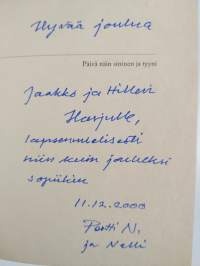 Hyvää joulua
Päivä näin sininen ja tyyni
Jaakko ja Hillevi
Harjulle,
lapsenmielisesti
niin kuin jouluksi
sopiikin
11.12.2000
Pertti N.
ja Nelli